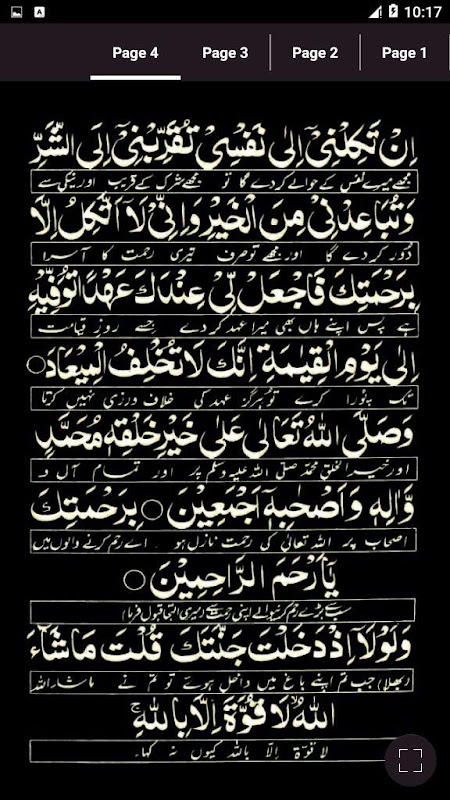 10:17
Page 4 Page 3 Page 2 Page 1
اِنْ تَكِلْنِیْ اِلٰی نَفْسِیْ تُقَرِّبْنِیْ اِلَی الشَّرِّ
مجھے میرے نفس کے حوالے کر دے گا تو مجھے شر کے قریب اور نیکی سے
وَتُبَاعِدْنِیْ مِنَ الْخَیْرِ وَاِنِّیْ لَا اَتَّکِلُ اِلَّا
دُور کر دے گا اور مجھے تو صرف تیری رحمت کا آسرا
بِرَحْمَتِكَ فَاجْعَلْ لِّیْ عِنْدَكَ عَهْدًا تُوَفِّیْهِ
ہے پس اپنے ہاں بھی میرا عہد کر دے جسے روزِ قیامت
اِلٰی یَوْمِ الْقِیٰمَةِ اِنَّكَ لَا تُخْلِفُ الْمِیْعَادَ○
تک پورا کرے تو ہرگز عہد کی خلاف ورزی نہیں کرتا
وَصَلَّی اللهُ تَعَالٰی عَلٰی خَیْرِ خَلْقِهٖ مُحَمَّدٍ
اور خیر الخلق محمد صلی اللہ علیہ وسلم پر اور تمام آل و
وَّاٰلِهٖ وَاَصْحَابِهٖ اَجْمَعِیْنَ ○ بِرَحْمَتِكَ
اصحاب پر اللہ تعالیٰ کی رحمت نازل ہو۔ اے رحم کرنے والوں میں
یَآ اَرْحَمَ الرَّاحِمِیْنَ ○
سب سے بڑے رحم کرنیوالے اپنی رحمت سے (میری التجا قبول فرما)
وَلَوْلَآ اِذْ دَخَلْتَ جَنَّتَكَ قُلْتَ مَاشَآءَ
(بھلا) جب تم اپنے باغ میں داخل ہوئے تو تم نے ماشاء اللہ
اللهُ لَا قُوَّةَ اِلَّا بِاللهِ
لا قوۃ الا باللہ کیوں نہ کہا۔